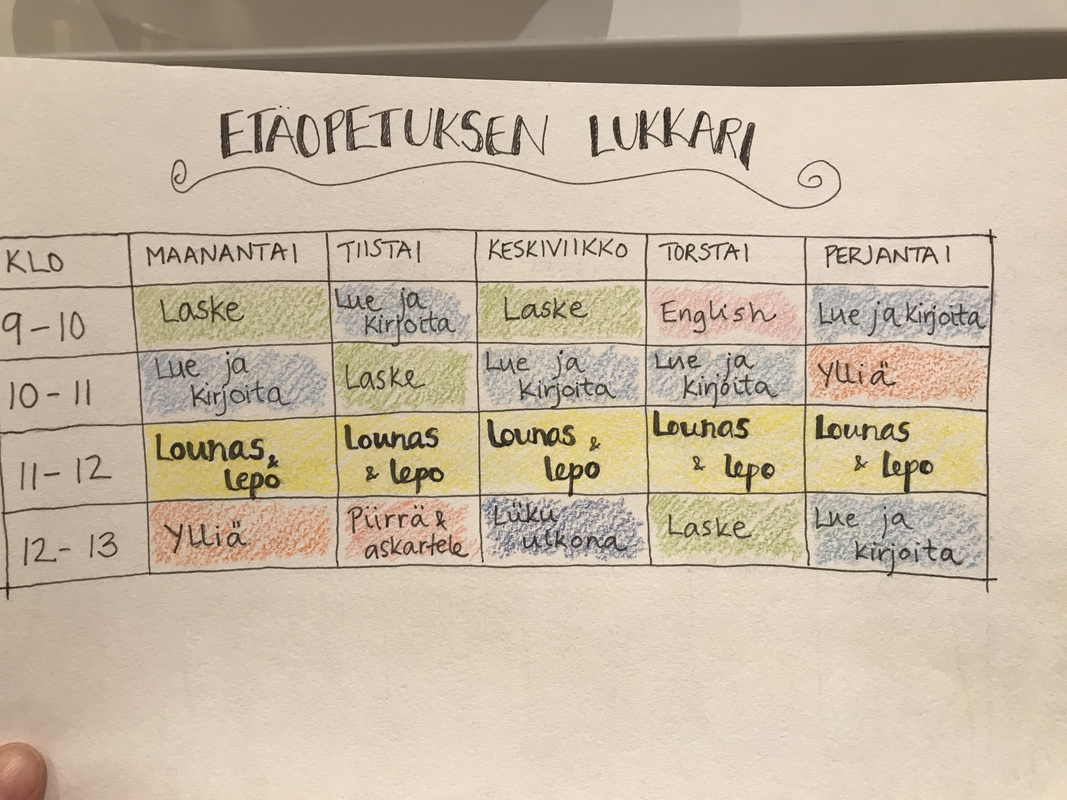 ETÄOPETUKSEN LUKKARI
KLO MAANANTAI TIISTAI KESKIVIIKKO TORSTAI PERJANTAI
9-10 Laske Lue ja kirjoita Laske English Lue ja kirjoita
10-11 Lue ja kirjoita Laske Lue ja kirjoita Lue ja kirjoita Ylliä
11-12 Lounas & lepo Lounas & lepo Lounas & lepo Lounas & lepo Lounas & lepo
12-13 Ylliä Piirrä & askartele Liiku ulkona Laske Lue ja kirjoita